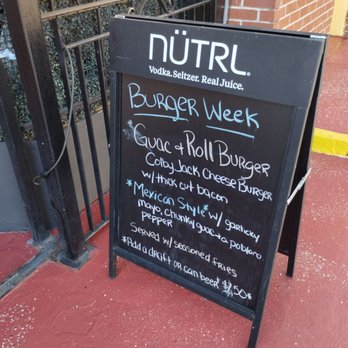 NÜTRL
Vodka. Seltzer. Real Juice.
Burger Week
*Guac & Roll Burger
Colby Jack Cheese Burger
w/ thick cut bacon
*Mexican Style* w/ garlicky
mayo, chunky guac + a poblano
pepper
Served w/ seasoned fries
*Add a draft or can beer *$2.50*